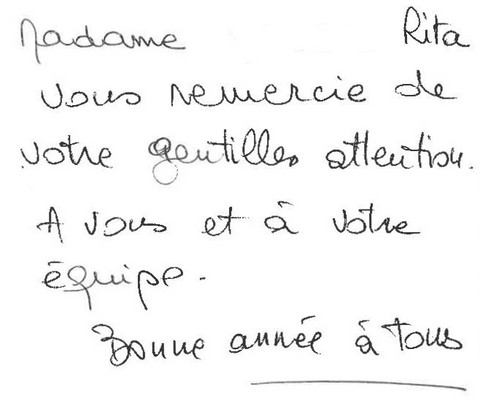 Madame Rita
vous remercie de
votre gentilles attention.
A vous et à votre
équipe.
Bonne année à tous